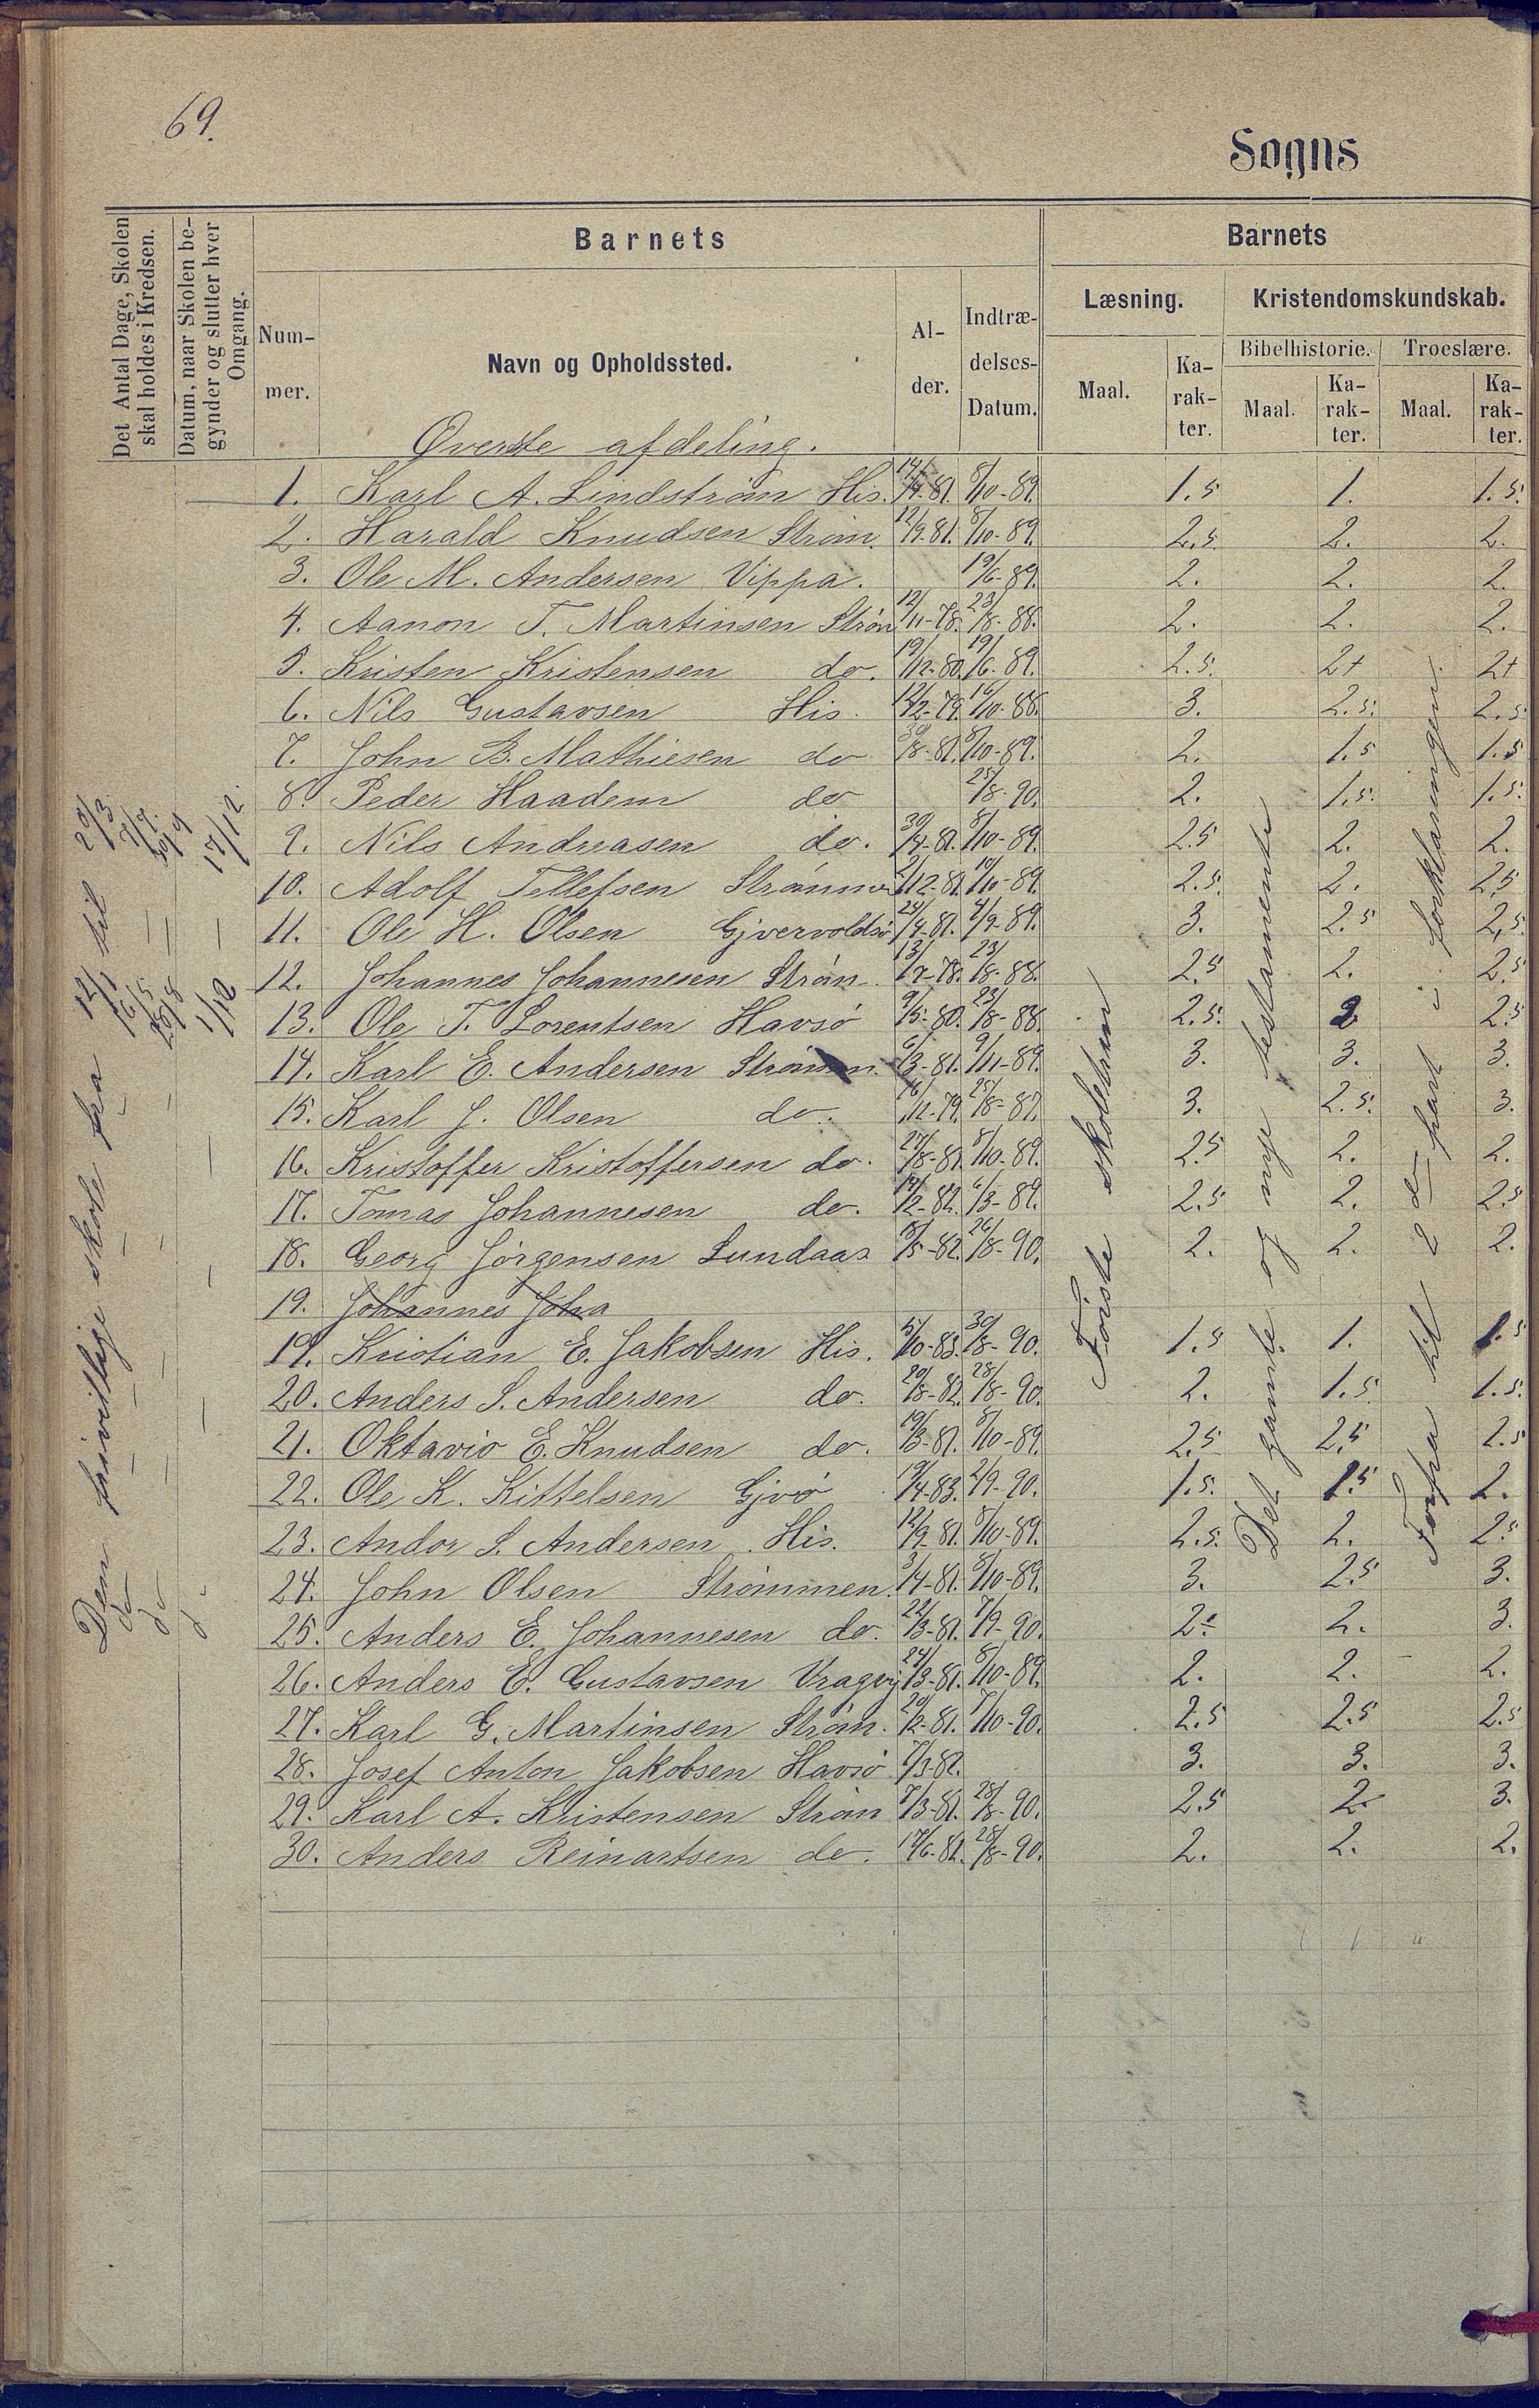 69.
Sogns
Det Antal Dage, Skolen skal holdes i Kredsen.
Datum, naar Skolen begynder og slutter hver Omgang.
Barnets
Barnets
Nummer.
Navn og Opholdssted.
Alder.
Indtrædelses-Datum.
Læsning.
Kristendomskundskab.
Maal.
Karakter.
Bibelhistorie.
Troeslære.
Maal.
Karakter.
Maal.
Karakter.
Øverste afdeling.
1. Karl A. Lindstrøm His. 14/4-81. 8/10-89. 1.5 1. 1.5.
2. Harald Knudsen Strøm. 12/9-81. 8/10-89. 2.5. 2. 2.
3. Ole M. Andersen Vippa. 19/6-89. 2. 2. 2.
4. Aanon T. Martinsen Strøm 12/11-78. 23/8-88. 2. 2. 2.
5. Kristen Kristensen do. 19/12-80. 19/6-89. 2.5. 2+ 2+
6. Nils Gustavsen His. 12/2-79. 16/10-88. 3. 2.5. 2.5
7. John B. Mathiesen do 30/8-81. 8/10-89. 2. 1.5 1.5
8. Peder Haadem do 25/8-90. 2. 1.5. 1.5.
9. Nils Andreasen do. 30/4-81. 8/10-89. 2.5 2. 2.
10. Adolf Tellefsen Strømmen 2/12-81. 10/10-89. 2.5. 2. 2.5
11. Ole H. Olsen Gjervoldsø 24/4-81. 4/9-89. 3. 2.5 2.5.
12. Johannes Johannesen Strøm. 13/7-78. 23/8-88. 2.5 2. 2.5
13. Ole T. Lorentsen Havsø 9/5-80. 23/8-88. 2.5. 2 2.5
14. Karl E. Andersen Strømmen. 6/3-81. 9/11-89. 3. 3. 3.
15. Karl J. Olsen do. 16/12-79. 25/8-87. 3. 2.5. 3.
16. Kristoffer Kristoffersen do. 27/8-81. 8/10-89. 2.5 2. 2.
17. Tomas Johannesen do. 14/2-82. 6/3-89. 2.5 2. 2.5
18. Georg Jørgensen Lundaas 18/5-82. 26/8-90. 2. 2. 2.
19. Johannes Joha
19. Kristian E. Jakobsen His. 5/10-83. 30/8-90. 1.5 1. 1.5
20. Anders S. Andersen do. 20/8-82. 28/8-90. 2. 1.5. 1.5.
21. Oktavio E. Knudsen do. 19/3-81. 8/10-89. 2.5 2.5 2.5
22. Ole K. Kittelsen Gjvø 19/4-83. 2/9-90. 1.5. 1.5 2.
23. Andor S. Andersen His. 12/9-81. 8/10-89. 2.5. 2. 2.5
24. John Olsen Strømmen. 3/4-81. 8/10-89. 3. 2.5 3.
25. Anders E. Johannesen do. 22/3-81. 7/9-90. 2.÷ 2. 3.
26. Anders E. Gustavsen Vragvig 24/3-81. 8/10-89. 2. 2. 2.
27. Karl G. Martinsen Strøm. 20/2-81. 7/10-90. 2.5 2.5 2.5
28. Josef Anton Jakobsen Havsø 7/3-82. 3. 3. 3.
29. Karl A. Kristensen Strøm 7/3-81. 28/8-90. 2.5 2. 3.
30. Anders Reinartsen do. 17/6-82. 28/8-90. 2. 2. 2.
Den frivillige skole fra 12/1 til 29/3
do — — 16/5 — 7/7.
do — — 25/8 — 30/9
do — — 1/12 — 17/12.
Første skoletrin
Det gamle og nye testamente
Forfra til 2den part i forklaringen.